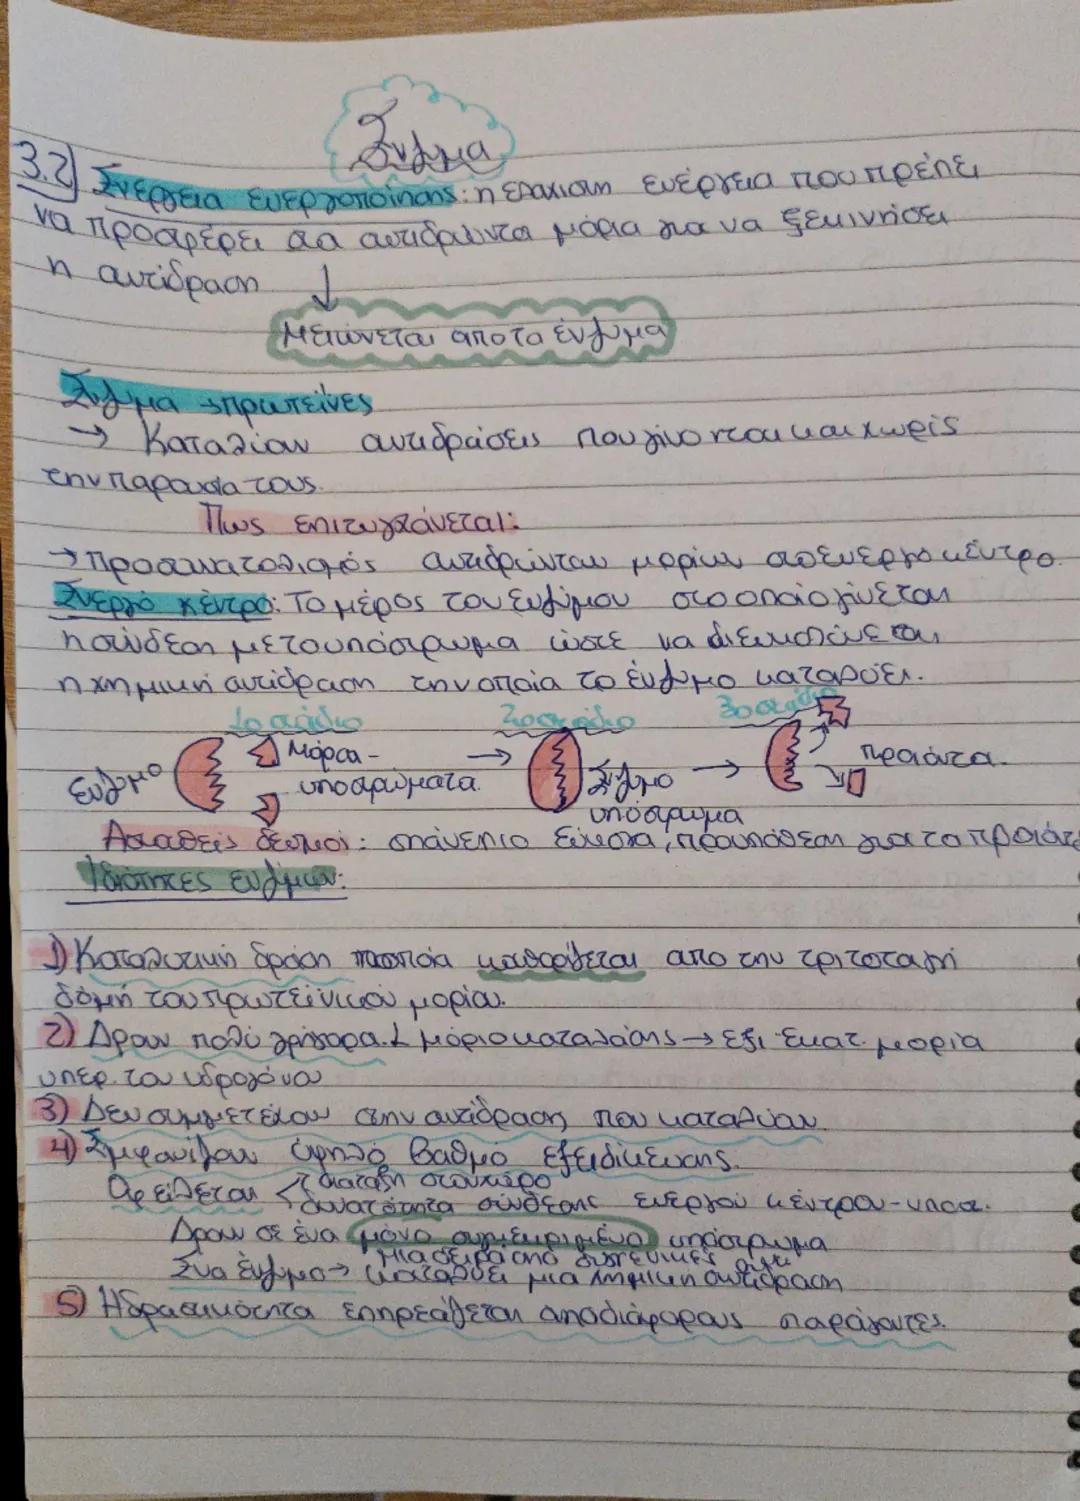 Ένζυμα
3.2) Ενέργεια ενεργοποίησης: η ελάχιστη ενέργεια που πρέπει
να προσφερει στα αντιδρώντα μόρια για να ξεκινήσει
η αντίδραση
Μειώνεται απο τα ένζυμα
Ένζυμα → πρωτεΐνες
→ Καταλύουν αντιδράσεις που γίνονται και χωρίς
την παρουσία τους.
Πως επιτυγχάνεται:
→ Προσανατολισμός αντιδρώντων μορίων στο ενεργο κέντρο.
Ενεργό κέντρο: Το μέρος του ενζύμου στο οποίο γίνεται
η σύνδεση με το υπόστρωμα ώστε να διευκολύνεται
η χημική αντίδραση την οποία το ένζυμο καταλύει.
1ο στάδιο 2ο στάδιο 3ο στάδιο
ενζυμο Μόρια- → Ένζυμο → προϊόντα.
υποστρώματα υπόστρωμα
Ασταθείς δεσμοί: σπάνε πιο εύκολα, προυπόθεση για τα προϊόντ
Ιδιότητες ενζύμων:
1) Καταλυτική δράση καθορίζεται απο την τριτοταγή
δομή του πρωτεϊνικού μορίου.
2) Δρουν πολύ γρήγορα. 1 μόριο καταλάσης → έξι εκατ. μορια
υπερ. του υδρογόνου
3) Δεν συμμετέχουν στην αντίδραση που καταλύουν.
4) Εμφανίζουν υψηλό βαθμό εξειδίκευσης.
Οφείλεται διάταξη στον χώρο
δυνατότητα σύνδεσης ενεργού κέντρου-υποσ.
Δρουν σε ένα μόνο συγκεκριμένο υπόστρωμα
μια σειρά απο συγγενικές
Ένα ένζυμο → καταλύει μια χημική αντίδραση
5) Η δραστικότητα επηρεάζεται απο διάφορους παράγοντες.